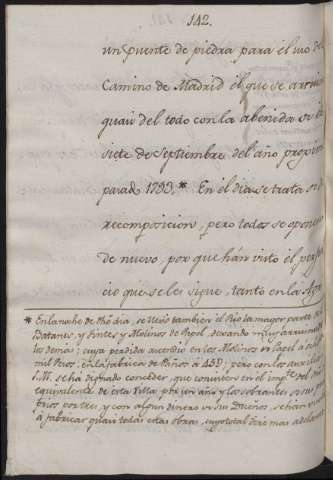 142.
un puente de piedra para el uso de
Camino de Madrid el que se arrui
quasi del todo con la abenida de
siete de Septiembre del año proximo
parado 1793.* En el dia se trata
recomposicion, pero todos se oponen
de nuevo, por que hán visto el perjui
cio que se les sigue, tanto en la
* En la noche de dho dia, se llevó tambien el Rio la mayor parte de
Batanes, y tintes, y Molinos de Papel, dexando muy arruinados
los demas; cuya perdida ascendio en los Molinos de Papel á
mil Pesos, en la fabrica de Paños á 45D; pero con los auxilios
S.M. se há dignado conceder, que consisten en el
equivalente de esta Villa por un año y los sobrantes de sus
brios por tres, y con algun dinero de sus Dueños, se hán
á fabricar quasi todas estas obras, cuyo total